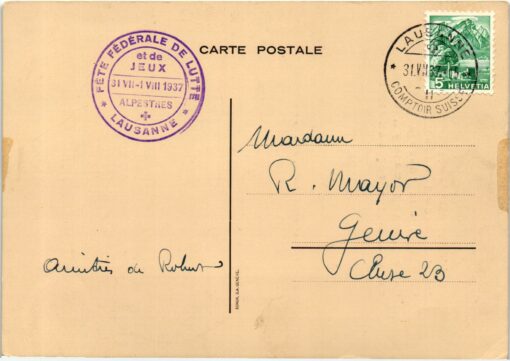 CARTE POSTALE
FÊTE FÉDÉRALE DE LUTTE
et de
JEUX
31 VII-1 VIII 1937
ALPESTRES
LAUSANNE
LAUSANNE
31.VII.37
11
COMPTOIR SUISSE
5
HELVETIA
R. Mayor
Genève
Cluse 23
de Robert